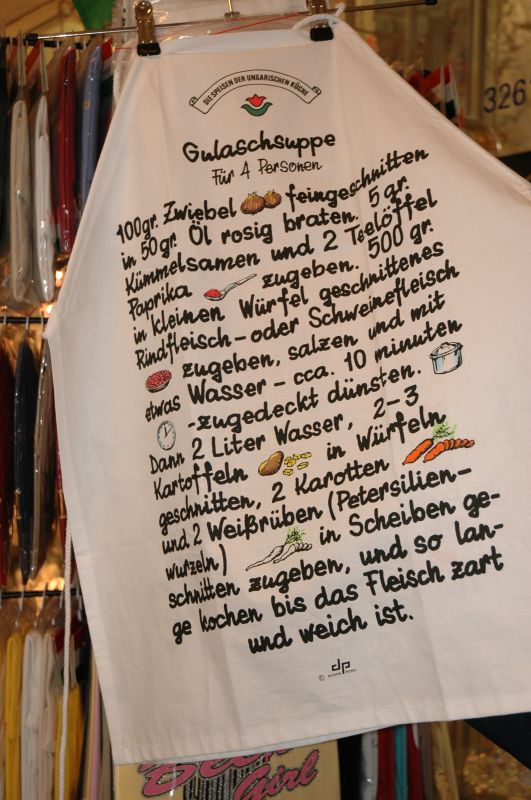 326
DIE SPEISEN DER UNGARISCHEN KÜCHE
Gulaschsuppe
Für 4 Personen
100gr. Zwiebel feingeschnitten
in 50gr. Öl rosig braten. 5 gr.
Kümmelsamen und 2 Teelöffel
Paprika zugeben. 500 gr.
in kleinen Würfel geschnittenes
Rindfleisch-oder Schweinefleisch
zugeben, salzen und mit
etwas Wasser - cca. 10 minuten
-zugedeckt dünsten.
Dann 2 Liter Wasser, 2-3
Kartoffeln in Würfeln
geschnitten, 2 Karotten
und 2 Weißrüben (Petersilien-
wurzeln) in Scheiben ge-
schnitten zugeben, und so lan-
ge kochen bis das Fleisch zart
und weich ist.
dp
©
Girl